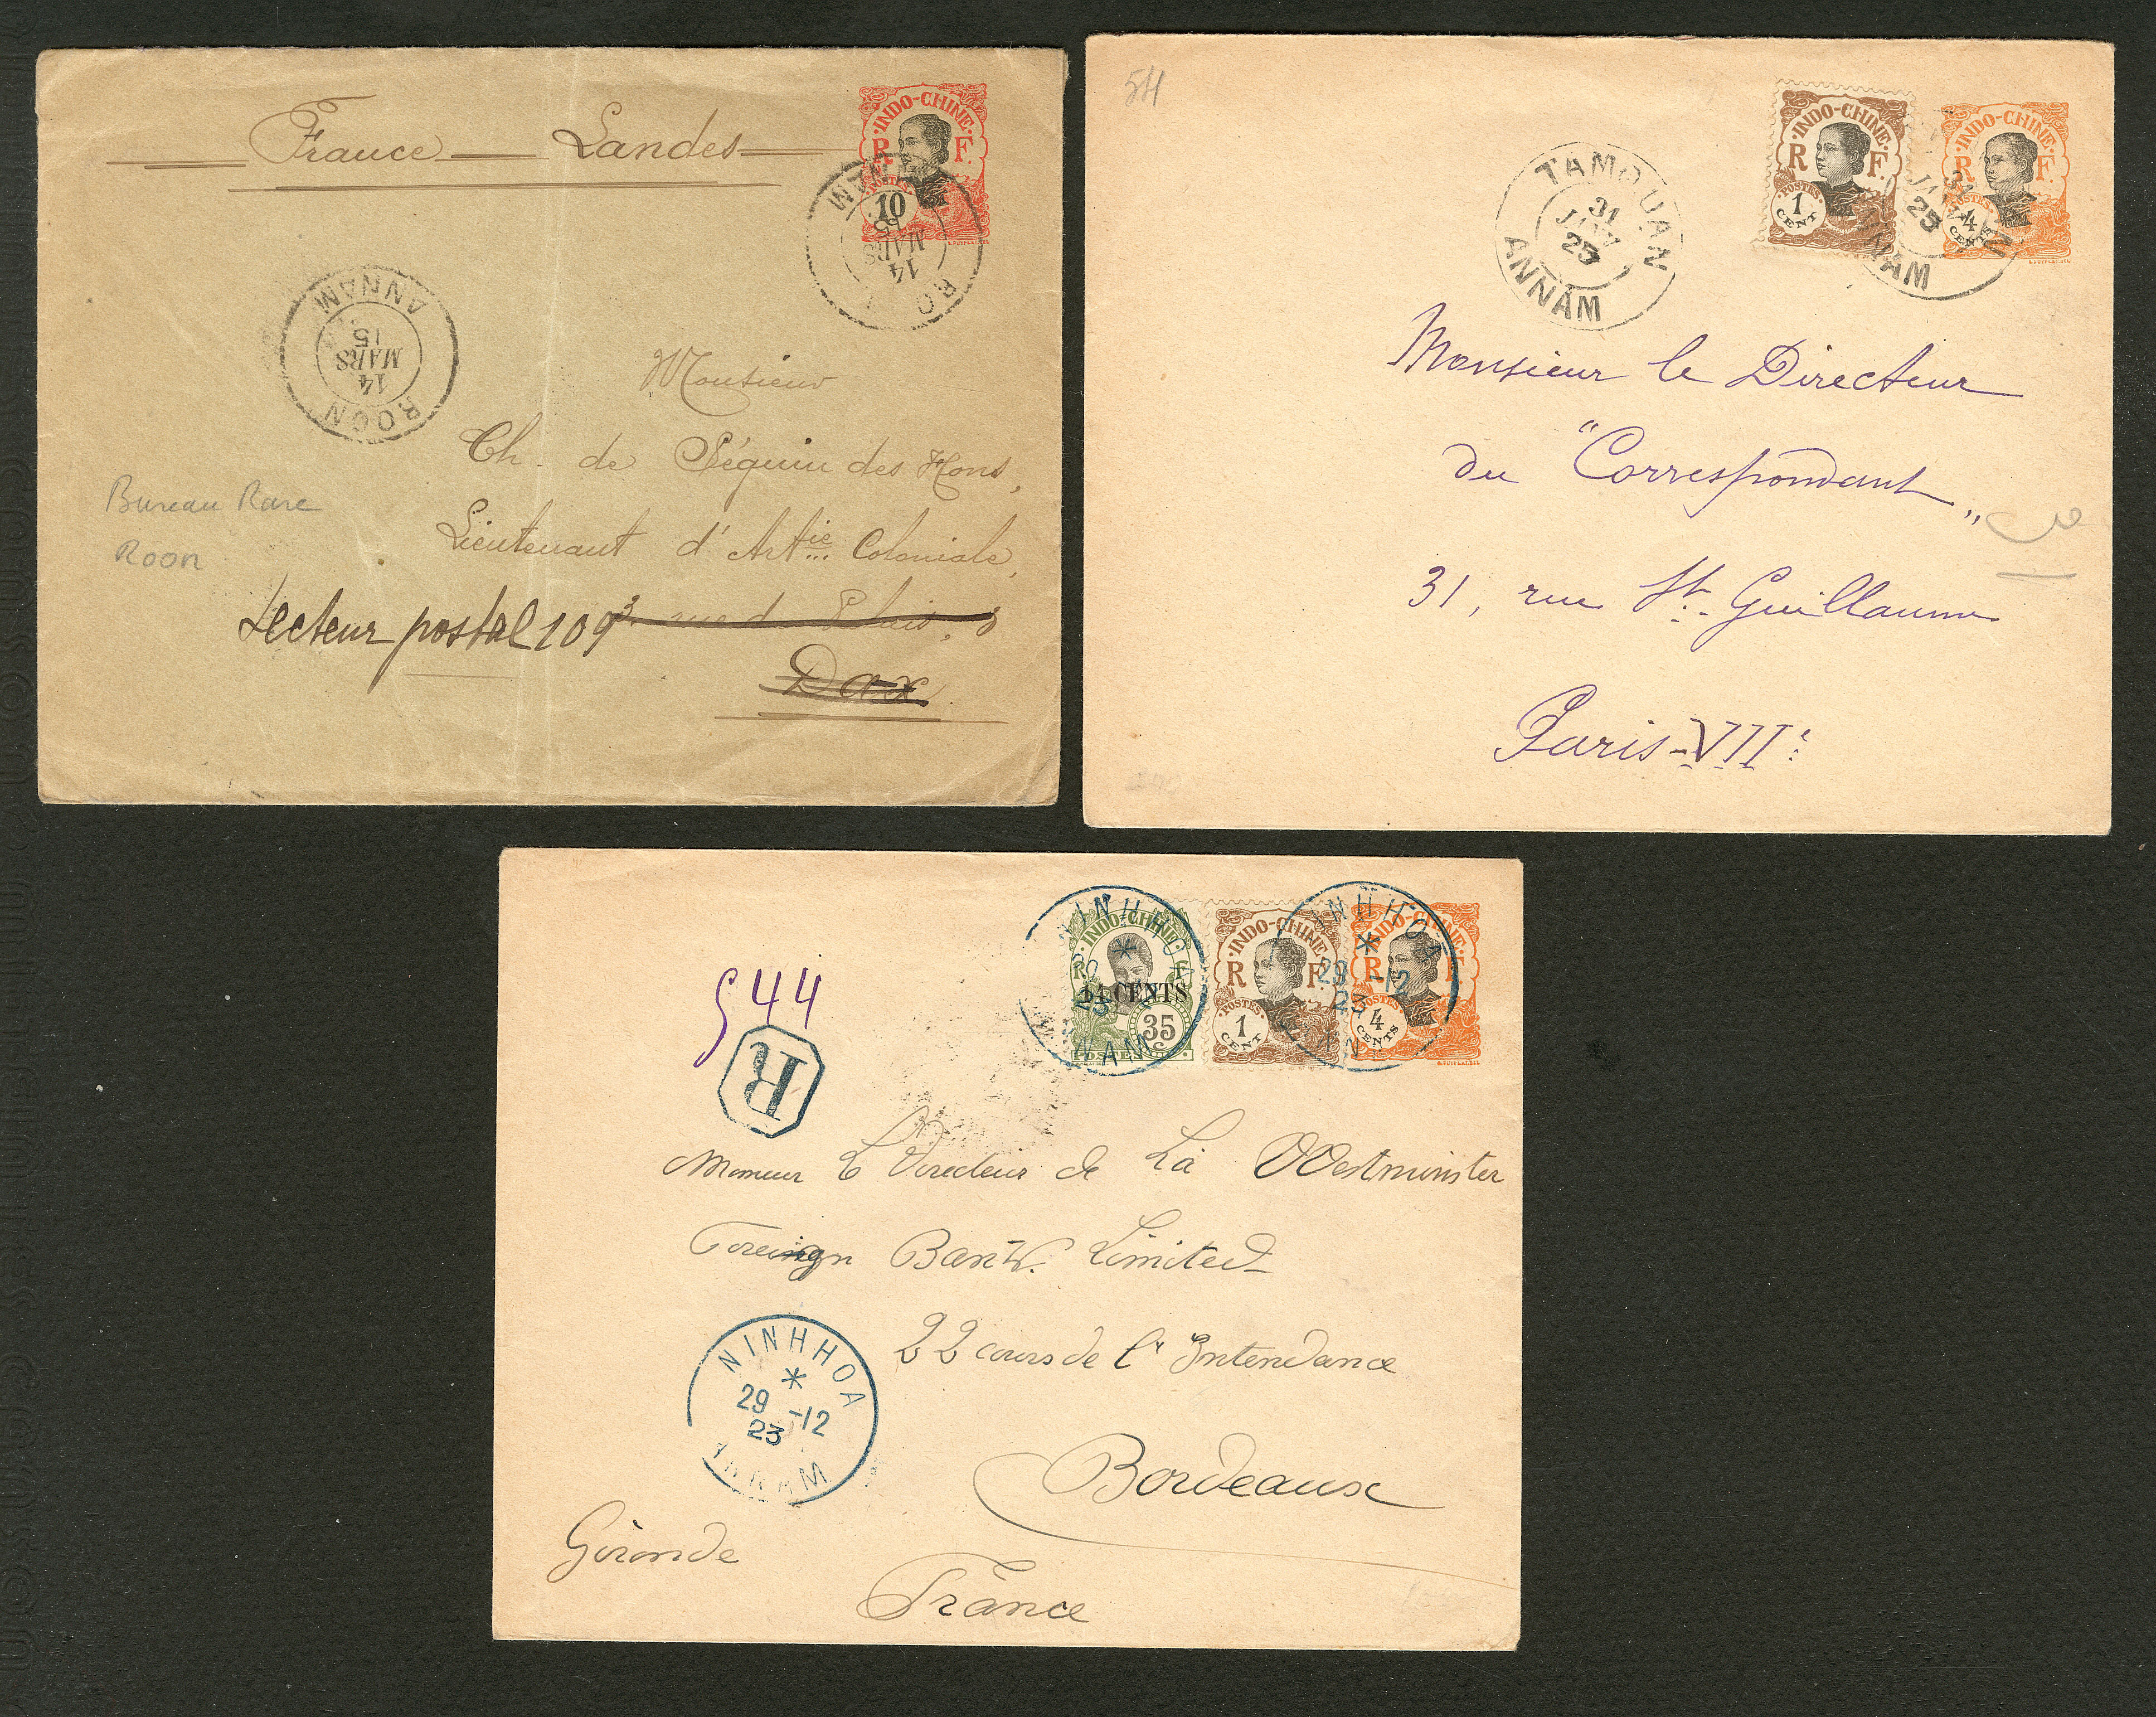 France Landes
INDO-CHINE
R F.
POSTES
10
ANNAM
14
MARS
15
ROON
ANNAM
14
MARS
15
Monsieur
Ch. de Séguin des Hons,
Lieutenant d'Artie Coloniale,
Bureau Rare
Roon
Secteur postal 109
3 rue du Palais, 3
Dax
54
INDO-CHINE
R F.
POSTES
1
CENT
INDO-CHINE
R F.
POSTES
4
CENTS
TAMQUAN
31
JANV
23
ANNAM
31
23
ANNAM
Monsieur le Directeur
du "Correspondant"
31, rue St. Guillaume
Paris-VIIe
INDO-CHINE
R F
14 CENTS
35 c
POSTES
INDO-CHINE
R F.
POSTES
1
CENT
INDO-CHINE
R F.
POSTES
4
CENTS
NINHHOA
29-12
23
544
R
Monsieur le Directeur de La Westminster
Foreingn Bank. Limited
22 cours de l'Intendance
NINHHOA
29-12
23
ANNAM
Bordeaux
Gironde
France